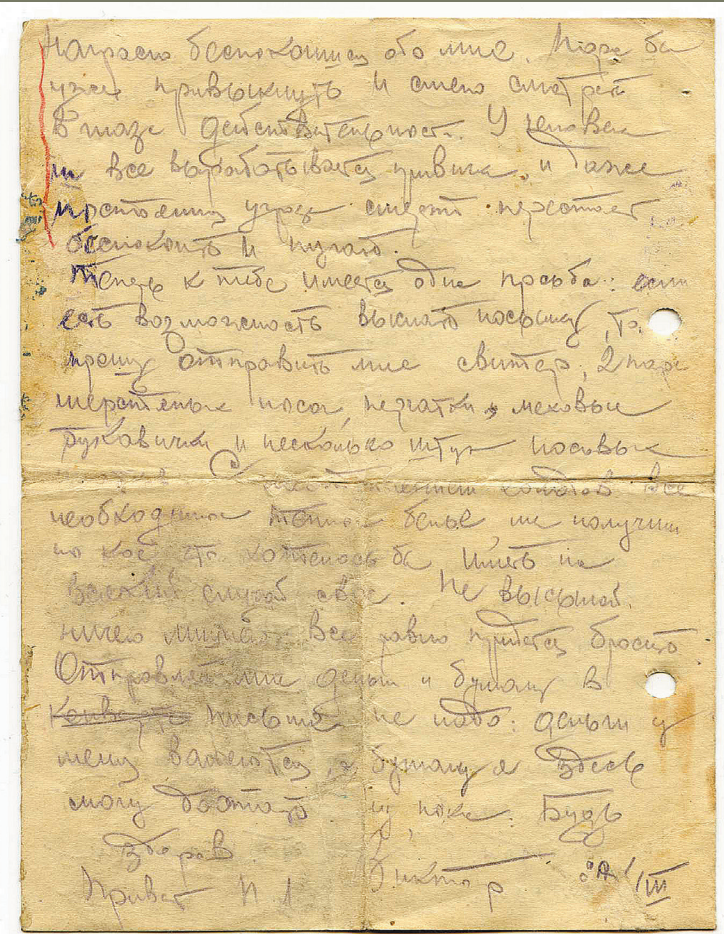 Напрасно беспокоишься обо мне. Пора бы
уже привыкнуть и смело смотреть
в глаза действительности. У человека
на все вырабатывается привычка, и даже
постоянная угроза смерти перестает
беспокоить и пугать.
Теперь к тебе имеется одна просьба: если
есть возможность выслать посылку, то
прошу отправить мне свитер, 2 пары
шерстяных носок, перчатки, меховые
рукавички и несколько штук носовых
С холодов все
необходимое теплое белье мы получим
но кое что хотелось бы иметь на
всякий случай свое. Не высылай
ничего лишнего. Все равно придется бросить
Отправлять мне деньги и бумагу в
конверте письма не надо: деньги у
меня валяются, а бумагу я здесь
могу достать ну пока. Будь
здоров. Виктор /III
Привет П Л